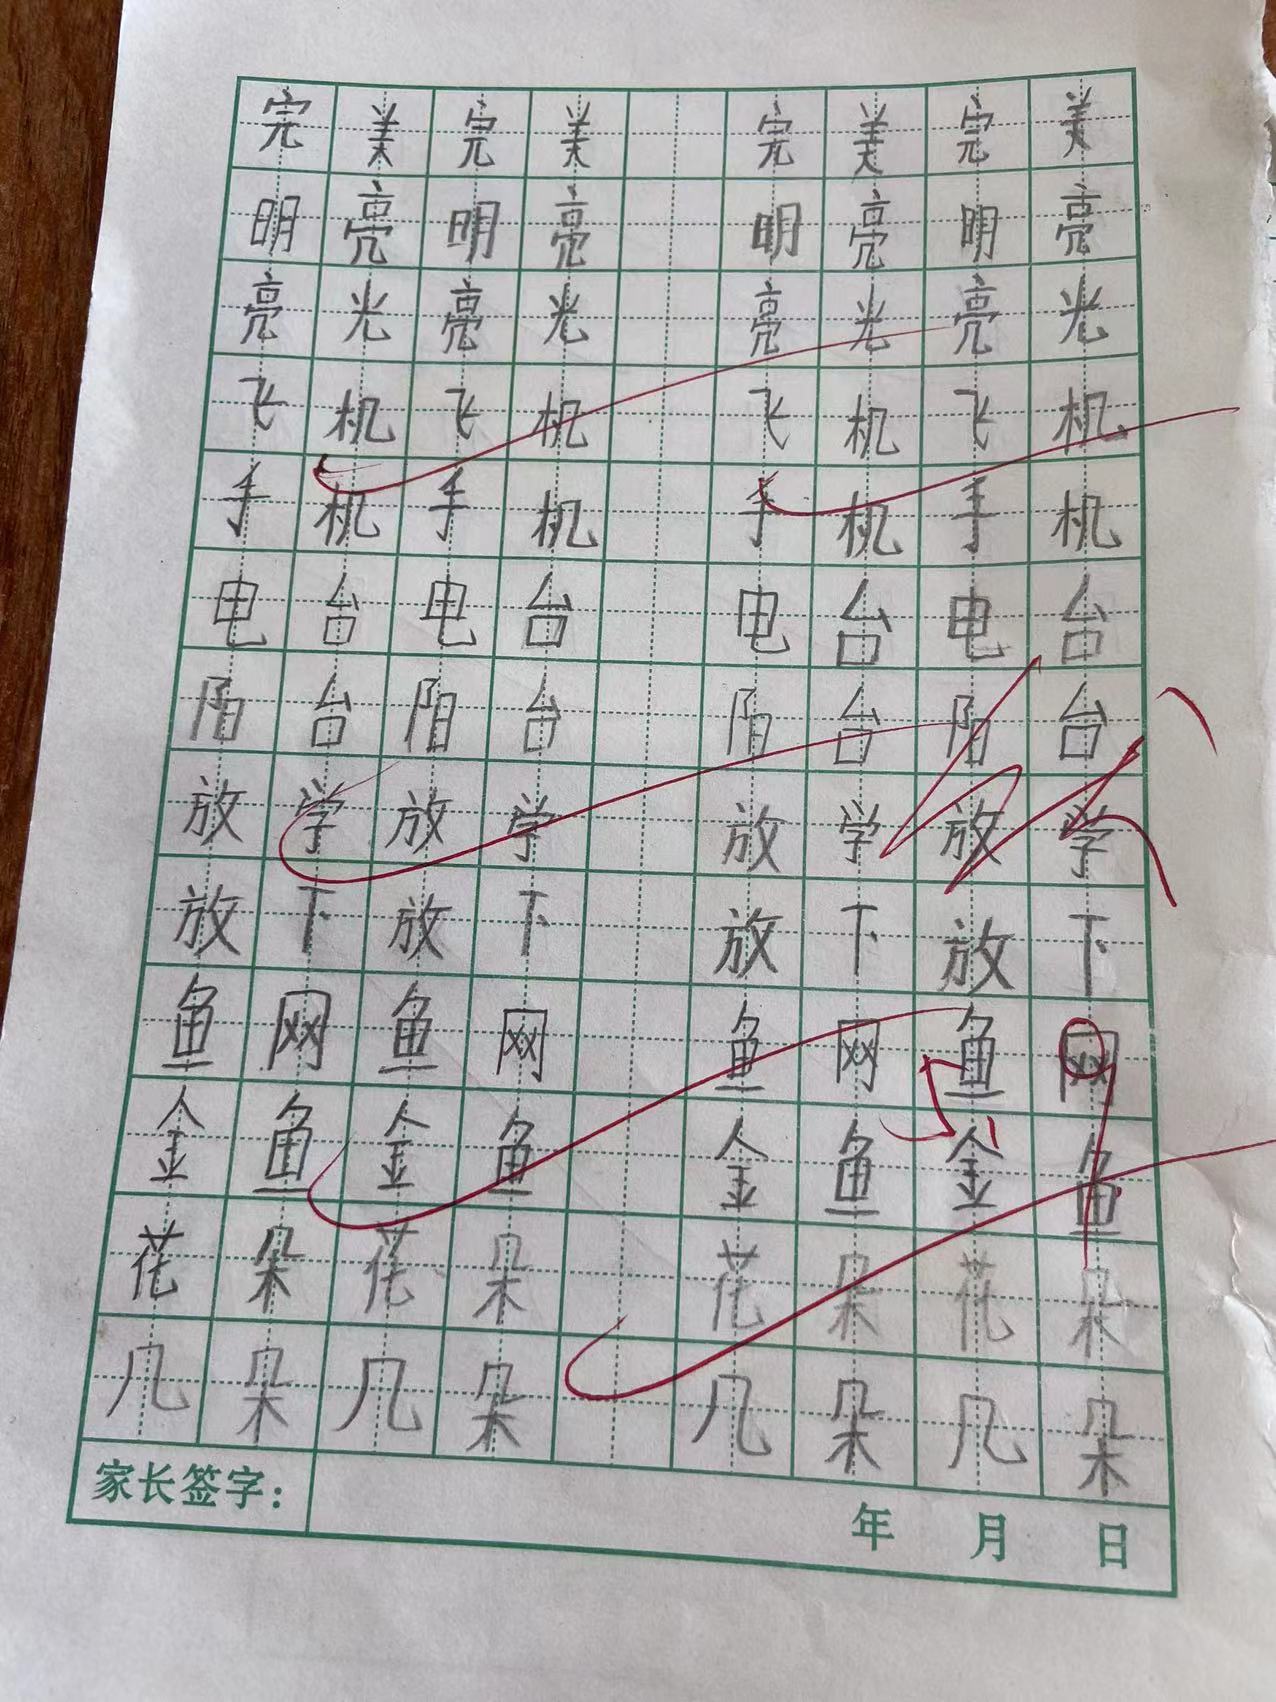 完美完美 完美完美
明亮明亮 明亮明亮
亮光亮光 亮光亮光
飞机飞机 飞机飞机
手机手机 手机手机
电台电台 电台电台
阳台阳台 阳台阳台
放学放学 放学放学
放下放下 放下放下
鱼网鱼网 鱼网鱼网
金鱼金鱼 金鱼金鱼
花朵花朵 花朵花朵
几朵几朵 几朵几朵
家长签字: 年 月 日